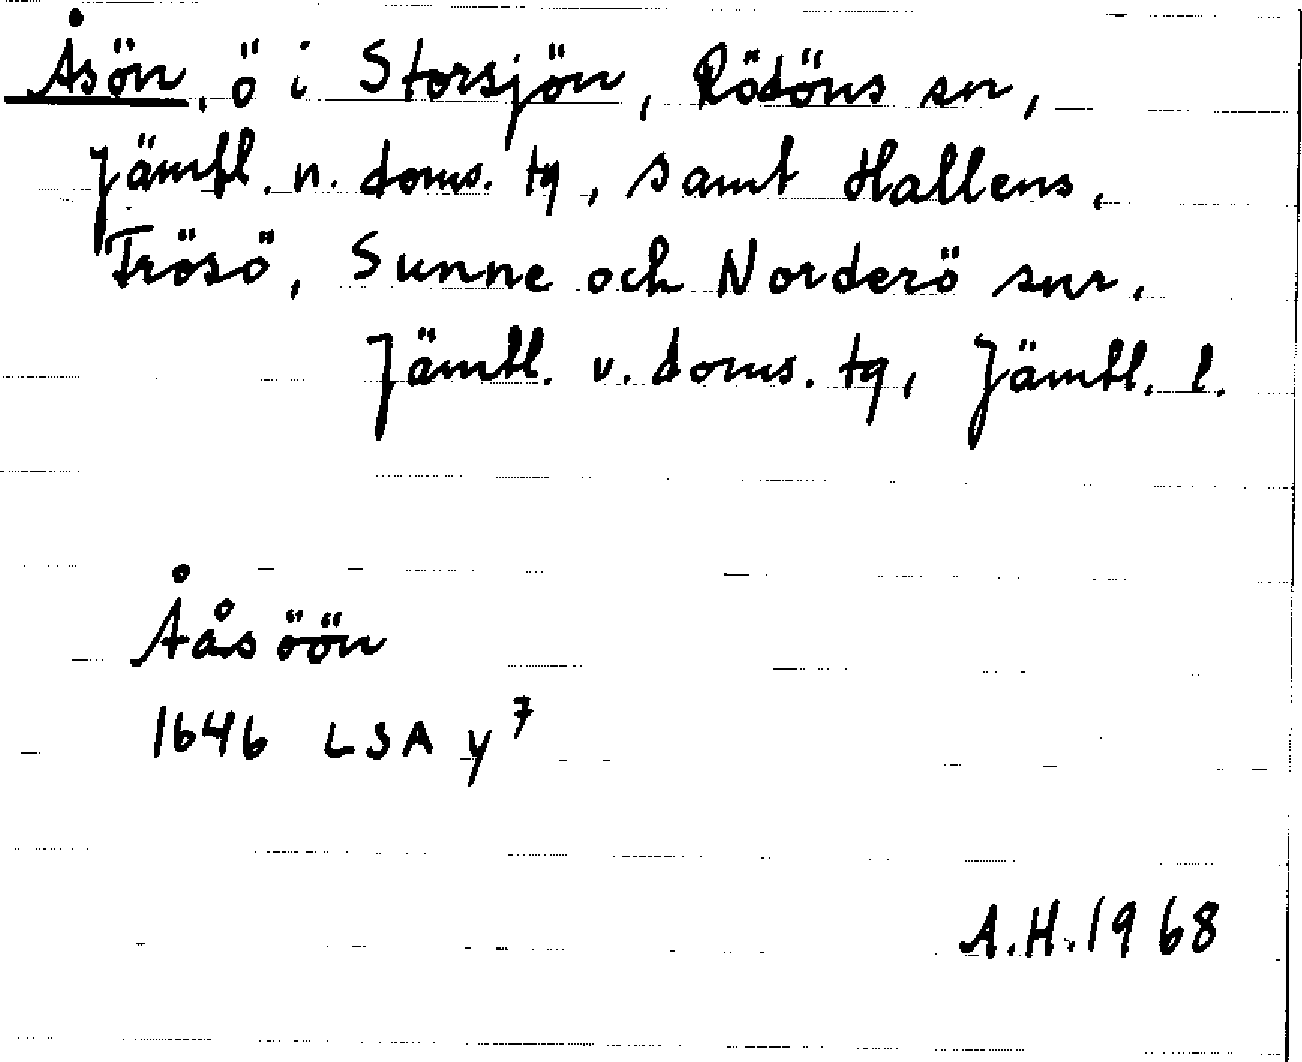 Åsön, ö i Storsjön, Rödöns sn,
Jämtl. n. doms. tg, samt Hallens,
Frösö, Sunne och Norderö snr,
Jämtl. v. doms. tg, Jämtl. l.
Åås öön
1646 LSA y⁷
A.H. 1968